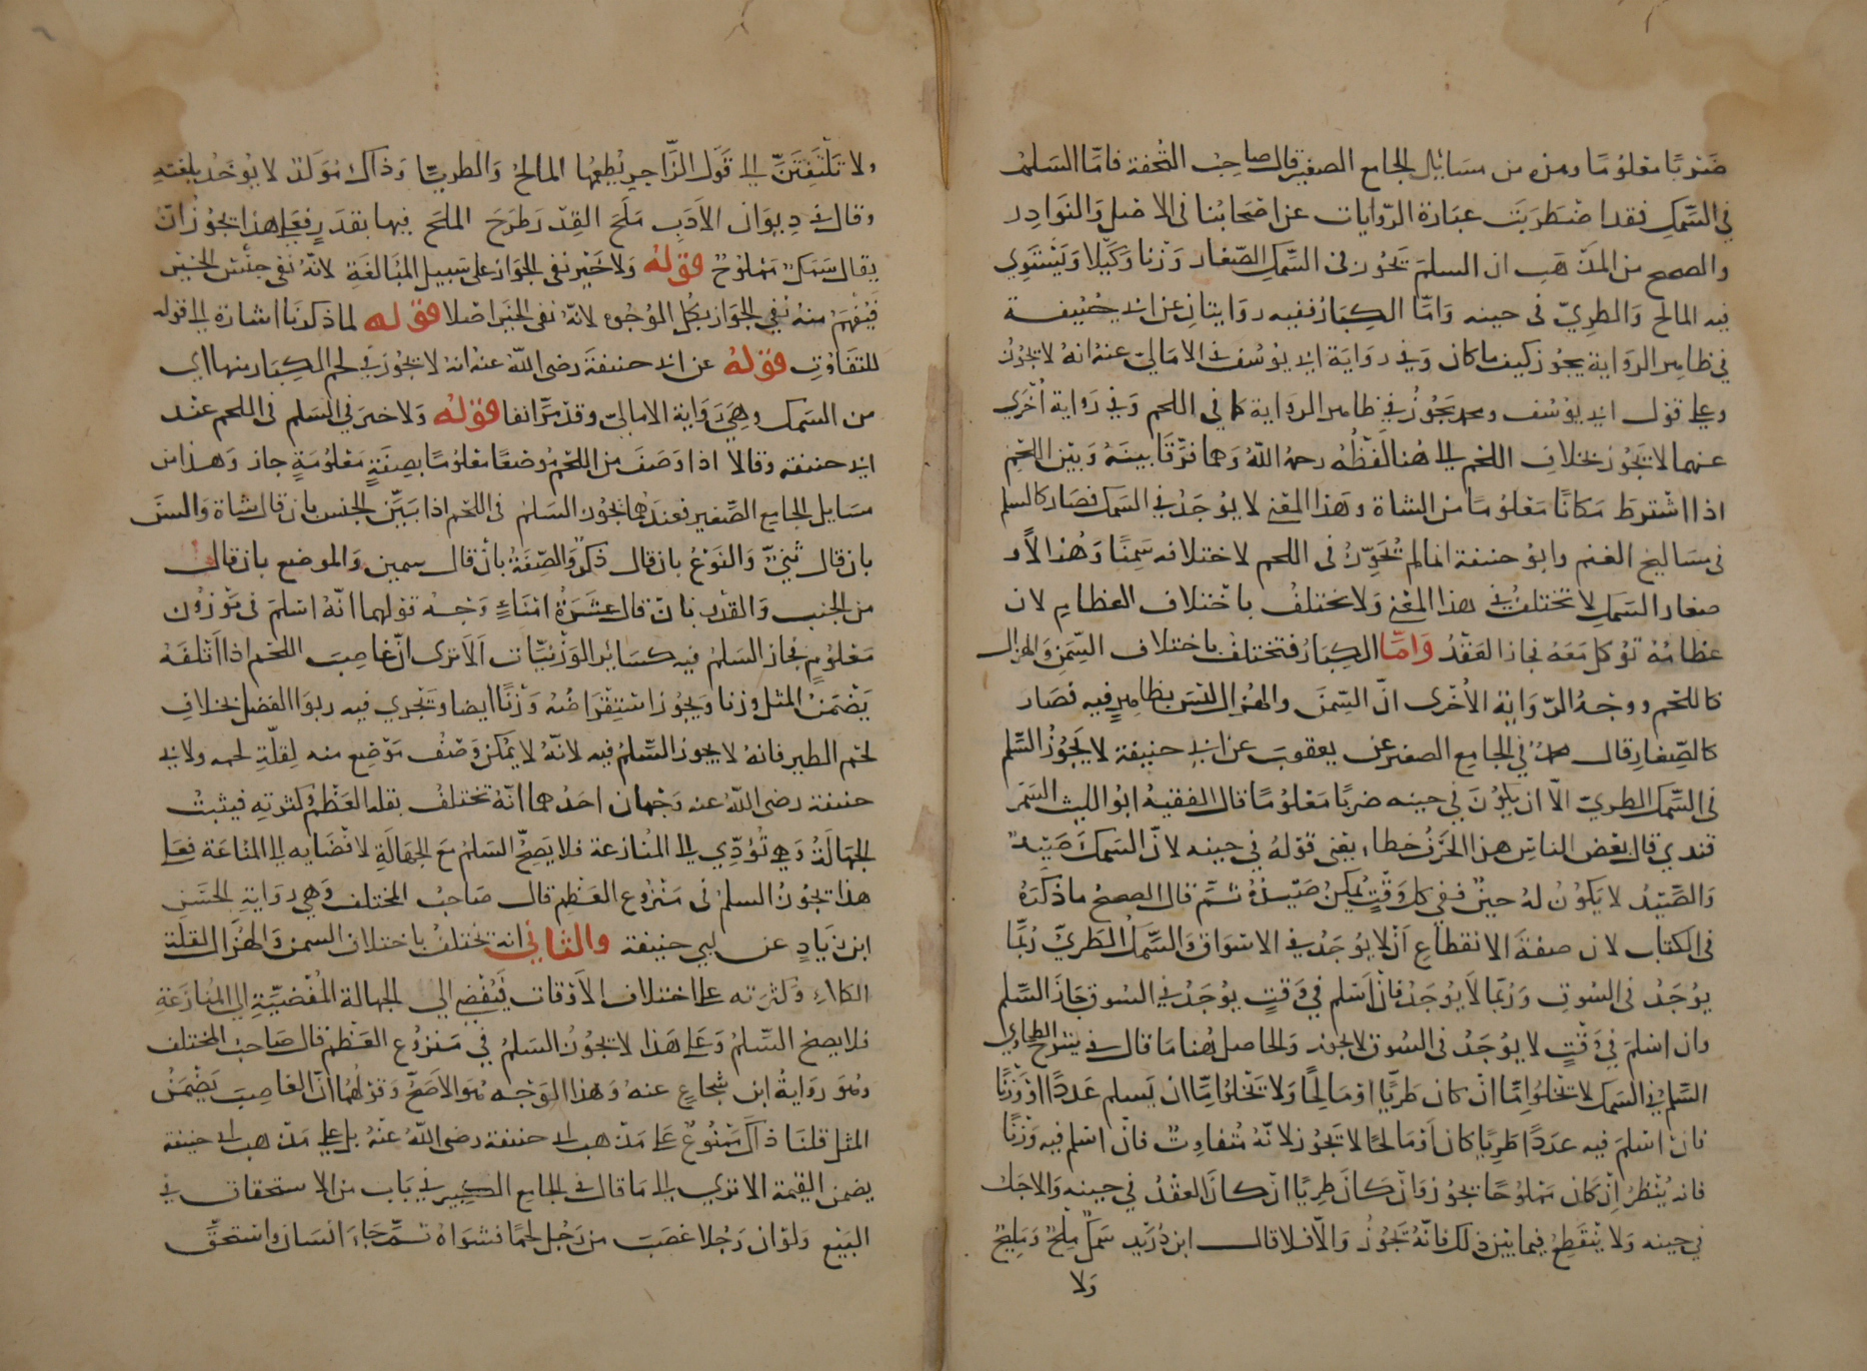 ضربًا معلومًا وهذه من مسائل الجامع الصغير قال صاحب التحفة فامّا السلم
في السّمك فقد اضطربت عبارة الرّوايات عن اصحابنا في الاصل والنوادر
والصحيح من المذهب ان السلم يجوز في السّمك الصّغار وزنا وكيلا ويستوي
فيه المالح والطريّ في حينه وامّا الكبار ففيه روايتان عن ابي حنيفة
في ظاهر الرواية يجوز كيف ما كان وفي رواية ابي يوسف في الامالي عنه انه لا يجوز
وعلى قول ابي يوسف ومحمد يجوز في ظاهر الرواية كما في اللحم وفي رواية اخرى
عنهما لا يجوز بخلاف اللحم الى هنا لفظه رحمه الله وهما فرّقا بينه وبين اللحم
اذا اشترط مكانًا معلومًا من الشاة وهذا المعنى لا يوجد في السمك فصار كالسلم
في مساليخ الغنم وابو حنيفة انما لم يُجَوِّز في اللحم لاختلافه سمنًا وهزالًا و
صغار السمك لا تختلف في هذا المعنى ولا يختلف باختلاف العظام لان
عظامه تؤكل معه فجاز العقد وَامّا الكبار فتختلف باختلاف السّمن والهزال
كاللحم ووجه الرّواية الأخرى انّ السِّمَن والهزال ليس بظاهرٍ فيه فصار
كالصِّغار قال محمد في الجامع الصغير عن يعقوب عن ابي حنيفة لا يجوز السّلم
في السّمك الطريّ الّا ان يكون في حينه ضربًا معلومًا قال الفقيه ابو الليث السمر
قندي قال بعض الناس هذا الحرف خطاء يعني قوله في حينه لانّ السمك صَيدٌ
والصَّيد لا يكون له حينٌ ففي كل وقتٍ يمكن صَيدُه ثمّ قال الصحيح ما ذكره
في الكتاب لان صفة الانقطاع ان لا يوجد في الاسواق والسّمك الطريّ ربّما
يوجد في السوق وربّما لا يوجد فان اسلم في وقتٍ يوجد في السوق جاز السّلم
وان اسلم في وقتٍ لا يوجد في السوق لا يجوز والحاصل هنا ما قال في شرح الطحاوي
السّلم في السمك لا تخلو امّا ان كان طريًّا او مالحًا ولا تخلو امّا ان يسلم عددًا او وزنًا
فان اسلم فيه عددًا طريًا كان او مالحًا لا يجوز لانّه متفاوتٌ فان اسلم فيه وزنًا
فانه يُنظر ان كان مملوحًا يجوز وان كان طريًا ان كان العقد في حينه والاجل
في حينه ولا ينقطع فيما بين ذلك فانّه يجوز والّا فلا قال ابن دُرَيد سمكٌ ملحٌ ومليحٌ
ولا
ولا تلتفتنّ الى قول الرّاجز يطعمها المالح والطريّا وذاك مُوَلَّد لا يؤخذ بلغته
وقال في ديوان الأدب مَلَحَ القِدر طَرَحَ الملح فيها بقدرٍ فعلى هذا يجوز ان
يقال سَمَكٌ مملوحٌ قوله ولا خير نفى الجواز على سبيل المبالغة لانّه نفى جنس الخير
فيُفهم منه نفي الجواز بكل الوجوه لانّه نفى الخير اصلا قوله لما ذكرنا اشارة الى قوله
للتفاوت قوله عن ابي حنيفة رضي الله عنه انه لا يجوز في لحم الكبار منها اي
من السمك وهي رواية الامالي وقد مرّ انفا قوله ولا خير في السلم في اللحم عند
ابي حنيفة وقالا اذا وصف من اللحم موضعًا معلومًا بصفةٍ معلومةٍ جاز وهذا من
مسايل الجامع الصّغير فعندهما يجوز السلم في اللحم اذا بيّن الجنس بان قال شاة والسنّ
بان قال ثنيّ والنوع بان قال ذكر والصّفة بان قال سمين والموضع بان قال
من الجنب والقدر بان قال عشرة امناء وجه قولهما انّه اسلم في موزون
معلومٍ فجاز السلم فيه كسائر الوزنيّات ألا ترى انّ غاصب اللحم اذا اتلفه
يضمن المثل وزنا ويجوز استقراضه وزنًا ايضا وتجري فيه ربوا الفضل بخلاف
لحم الطير فانه لا يجوز السّلم فيه لانّه لا يمكن وصف موضع منه لقلّة لحمه ولابي
حنيفة رضي الله عنه وجهان احدهما انّه تختلف بقلة العظم وكثرته فيثبت
الجهالة وهي تؤدّي الى المنازعة فلا يصحّ السلم مع الجهالة لافضايه الى المنازعة فعلى
هذا يجوز السلم في منزوع العظم قال صاحب المختلف وهي رواية الحسن
ابن زيادٍ عن ابي حنيفة والثاني انه يختلف باختلاف السمن والهزال لقلة
الكلاء وكثرته على اختلاف الأوقات فيُفضي الى الجهالة المُفضيّةِ الى المنازعةِ
فلا يصح السّلم وعلى هذا لا يجوز السلم في منزوع العظم قال صاحب المختلف
وهو رواية ابن شجاعٍ عنه وهذا الوجه هو الاصحّ وقولهما انّ الغاصب يضمن
المثل قلنا ذاك ممنوعٌ على مذهب ابي حنيفة رضي الله عنه بل على مذهب ابي حنيفة
يضمن القيمة الا ترى الى ما قال في الجامع الكبير في باب من الاستحقاق في
البيع ولو ان رجلا غصب من رجل لحمًا فشواه ثمّ جاء انسان واستحقّ